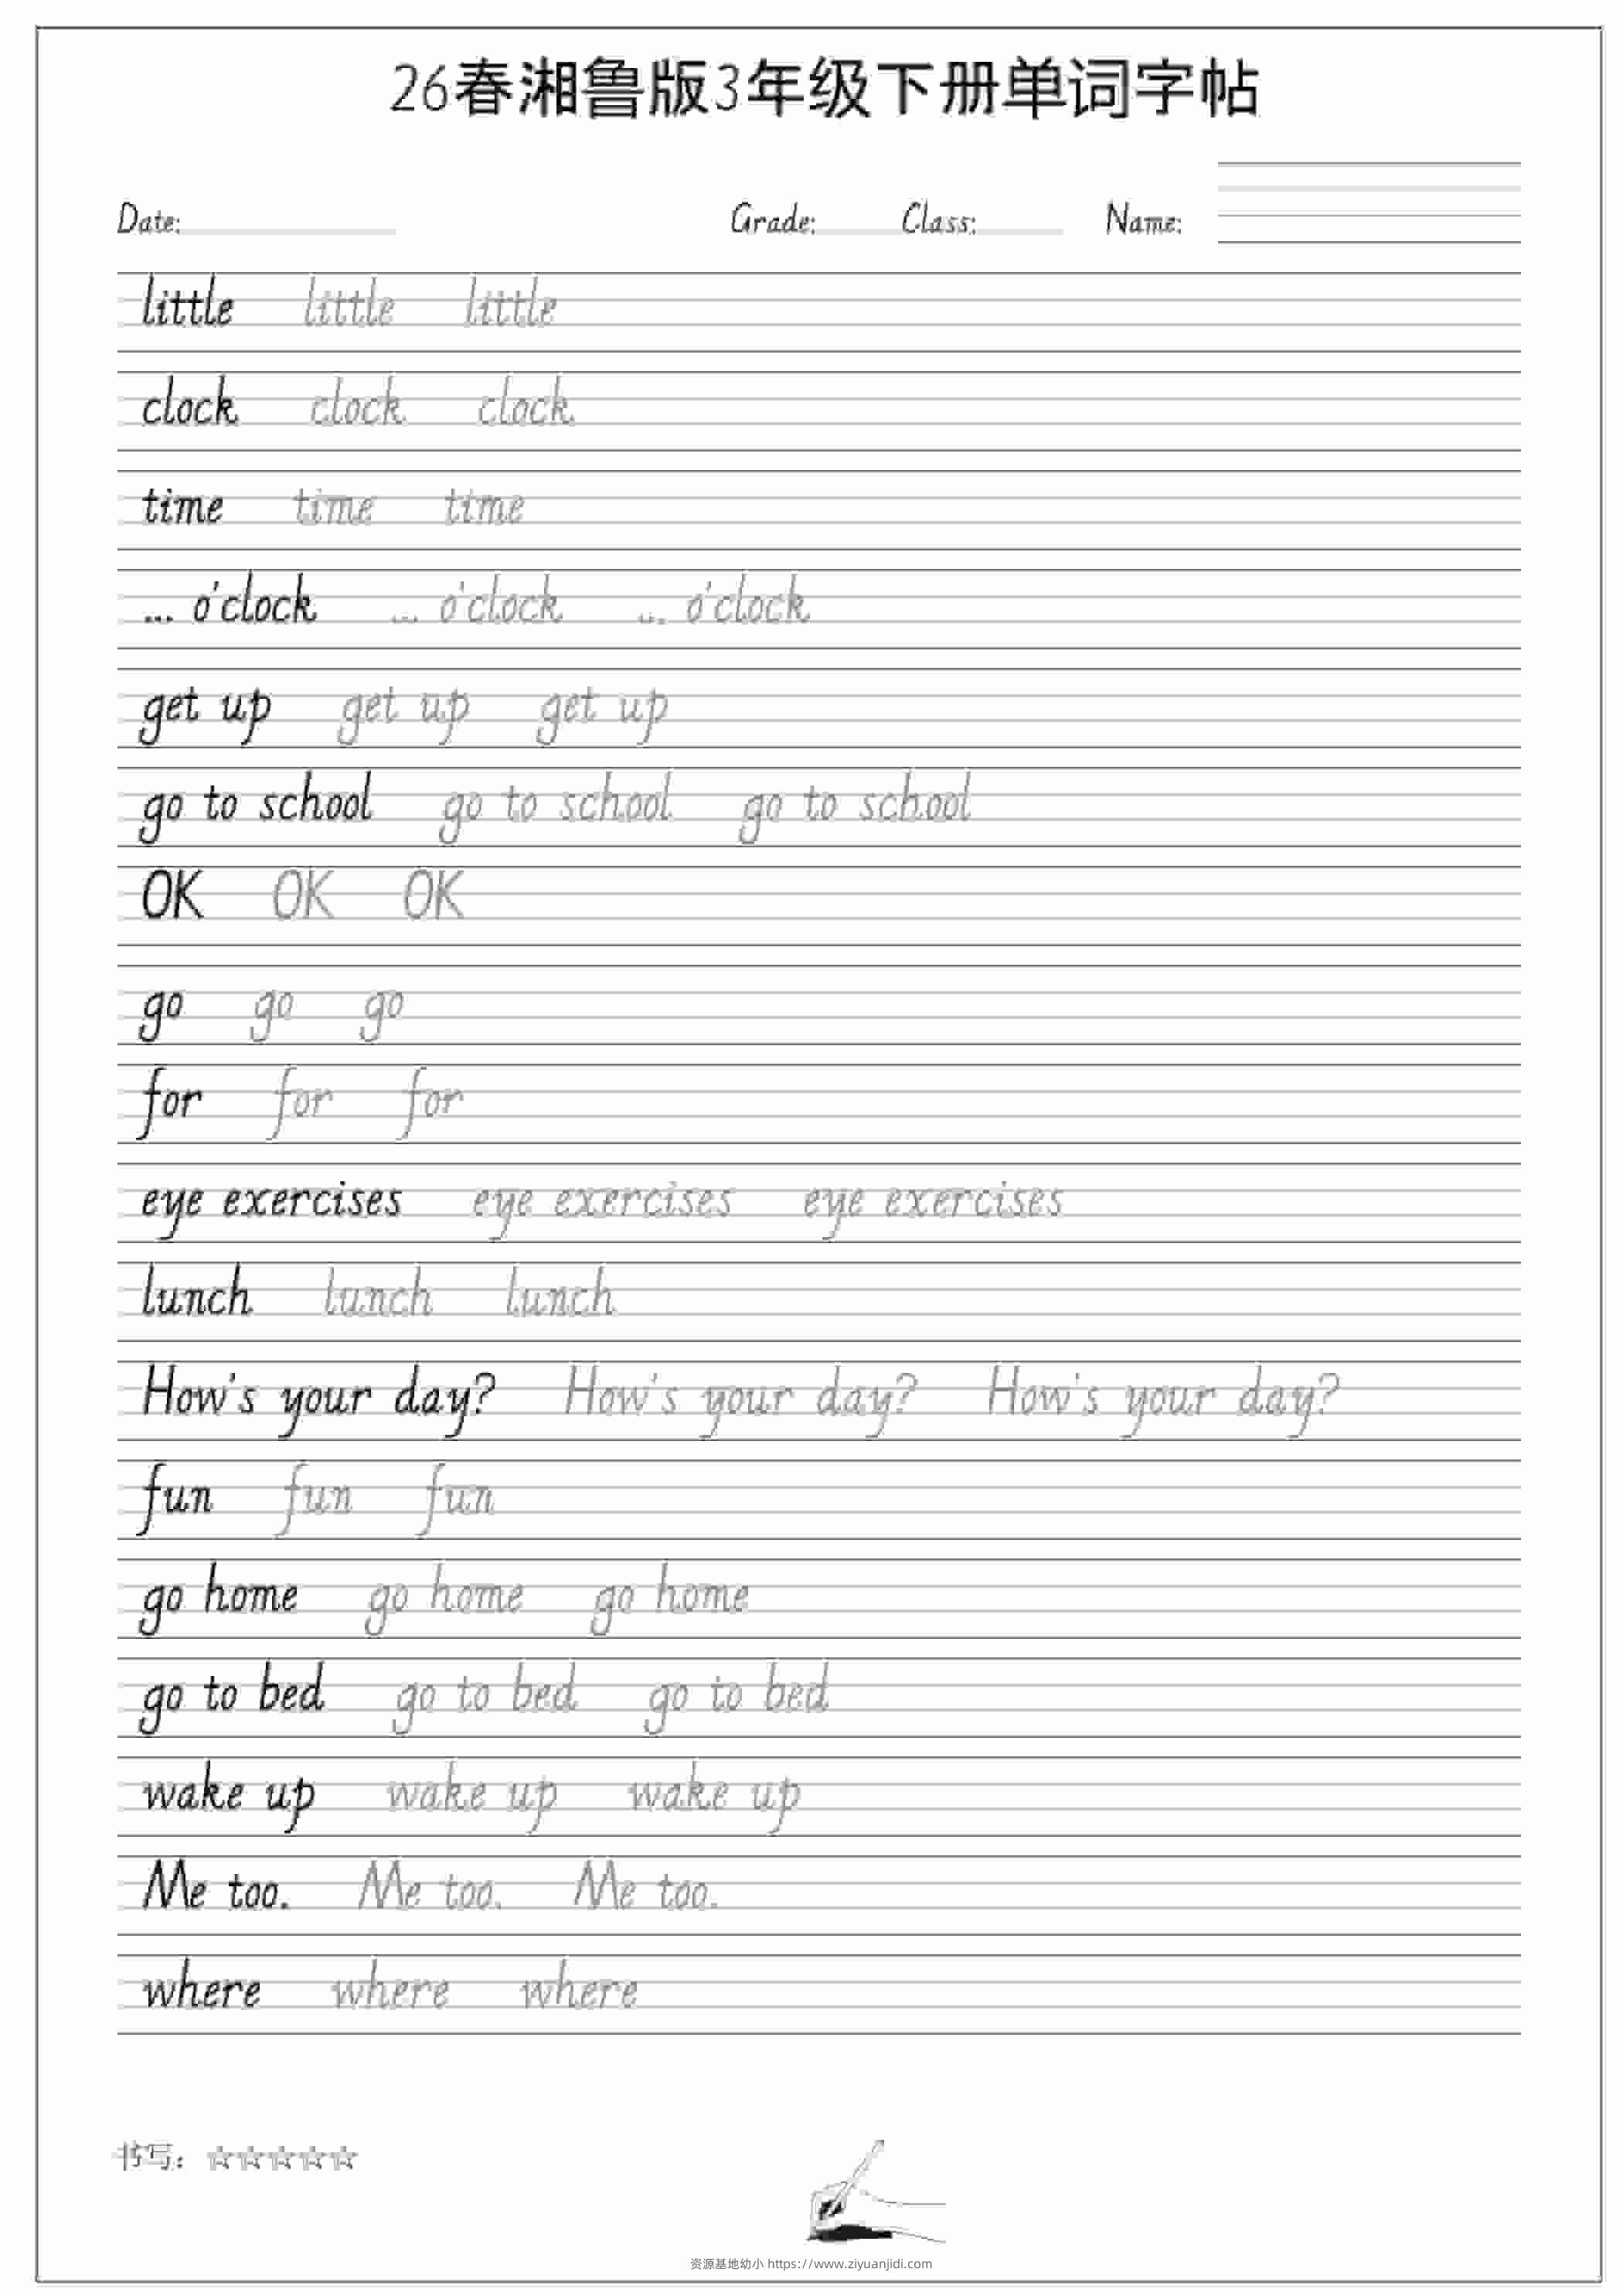 26春湘鲁版3年级下册单词字帖
Date: Grade: Class: Name:
little little little
clock clock clock
time time time
... o'clock ... o'clock ... o'clock
get up get up get up
go to school go to school go to school
OK OK OK
go go go
for for for
eye exercises eye exercises eye exercises
lunch lunch lunch
How's your day? How's your day? How's your day?
fun fun fun
go home go home go home
go to bed go to bed go to bed
wake up wake up wake up
Me too. Me too. Me too.
where where where
书写：☆☆☆☆☆
资源基地幼小 https://www.ziyuanjidi.com